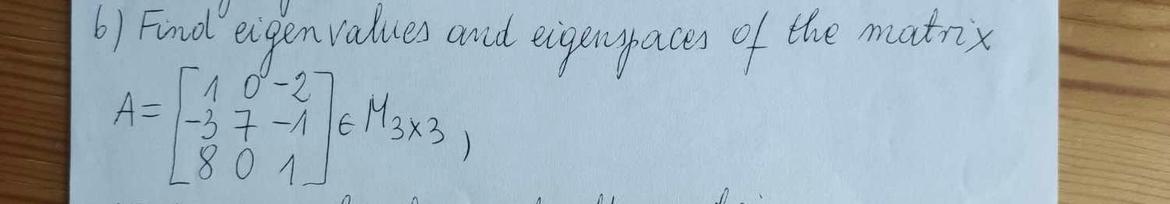 b) Find eigenvalues and eigenspaces of the matrix
A = [1 0 -2
-3 7 -1
8 0 1] ∈ M3×3,